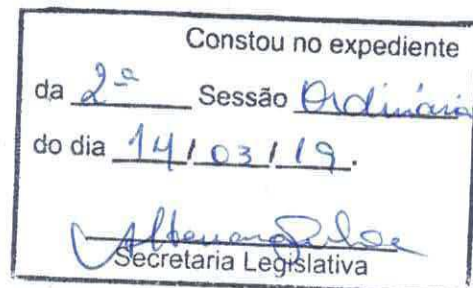 Constou no expediente
da 2ª Sessão Ordinária
do dia 14/03/19.
Secretaria Legislativa